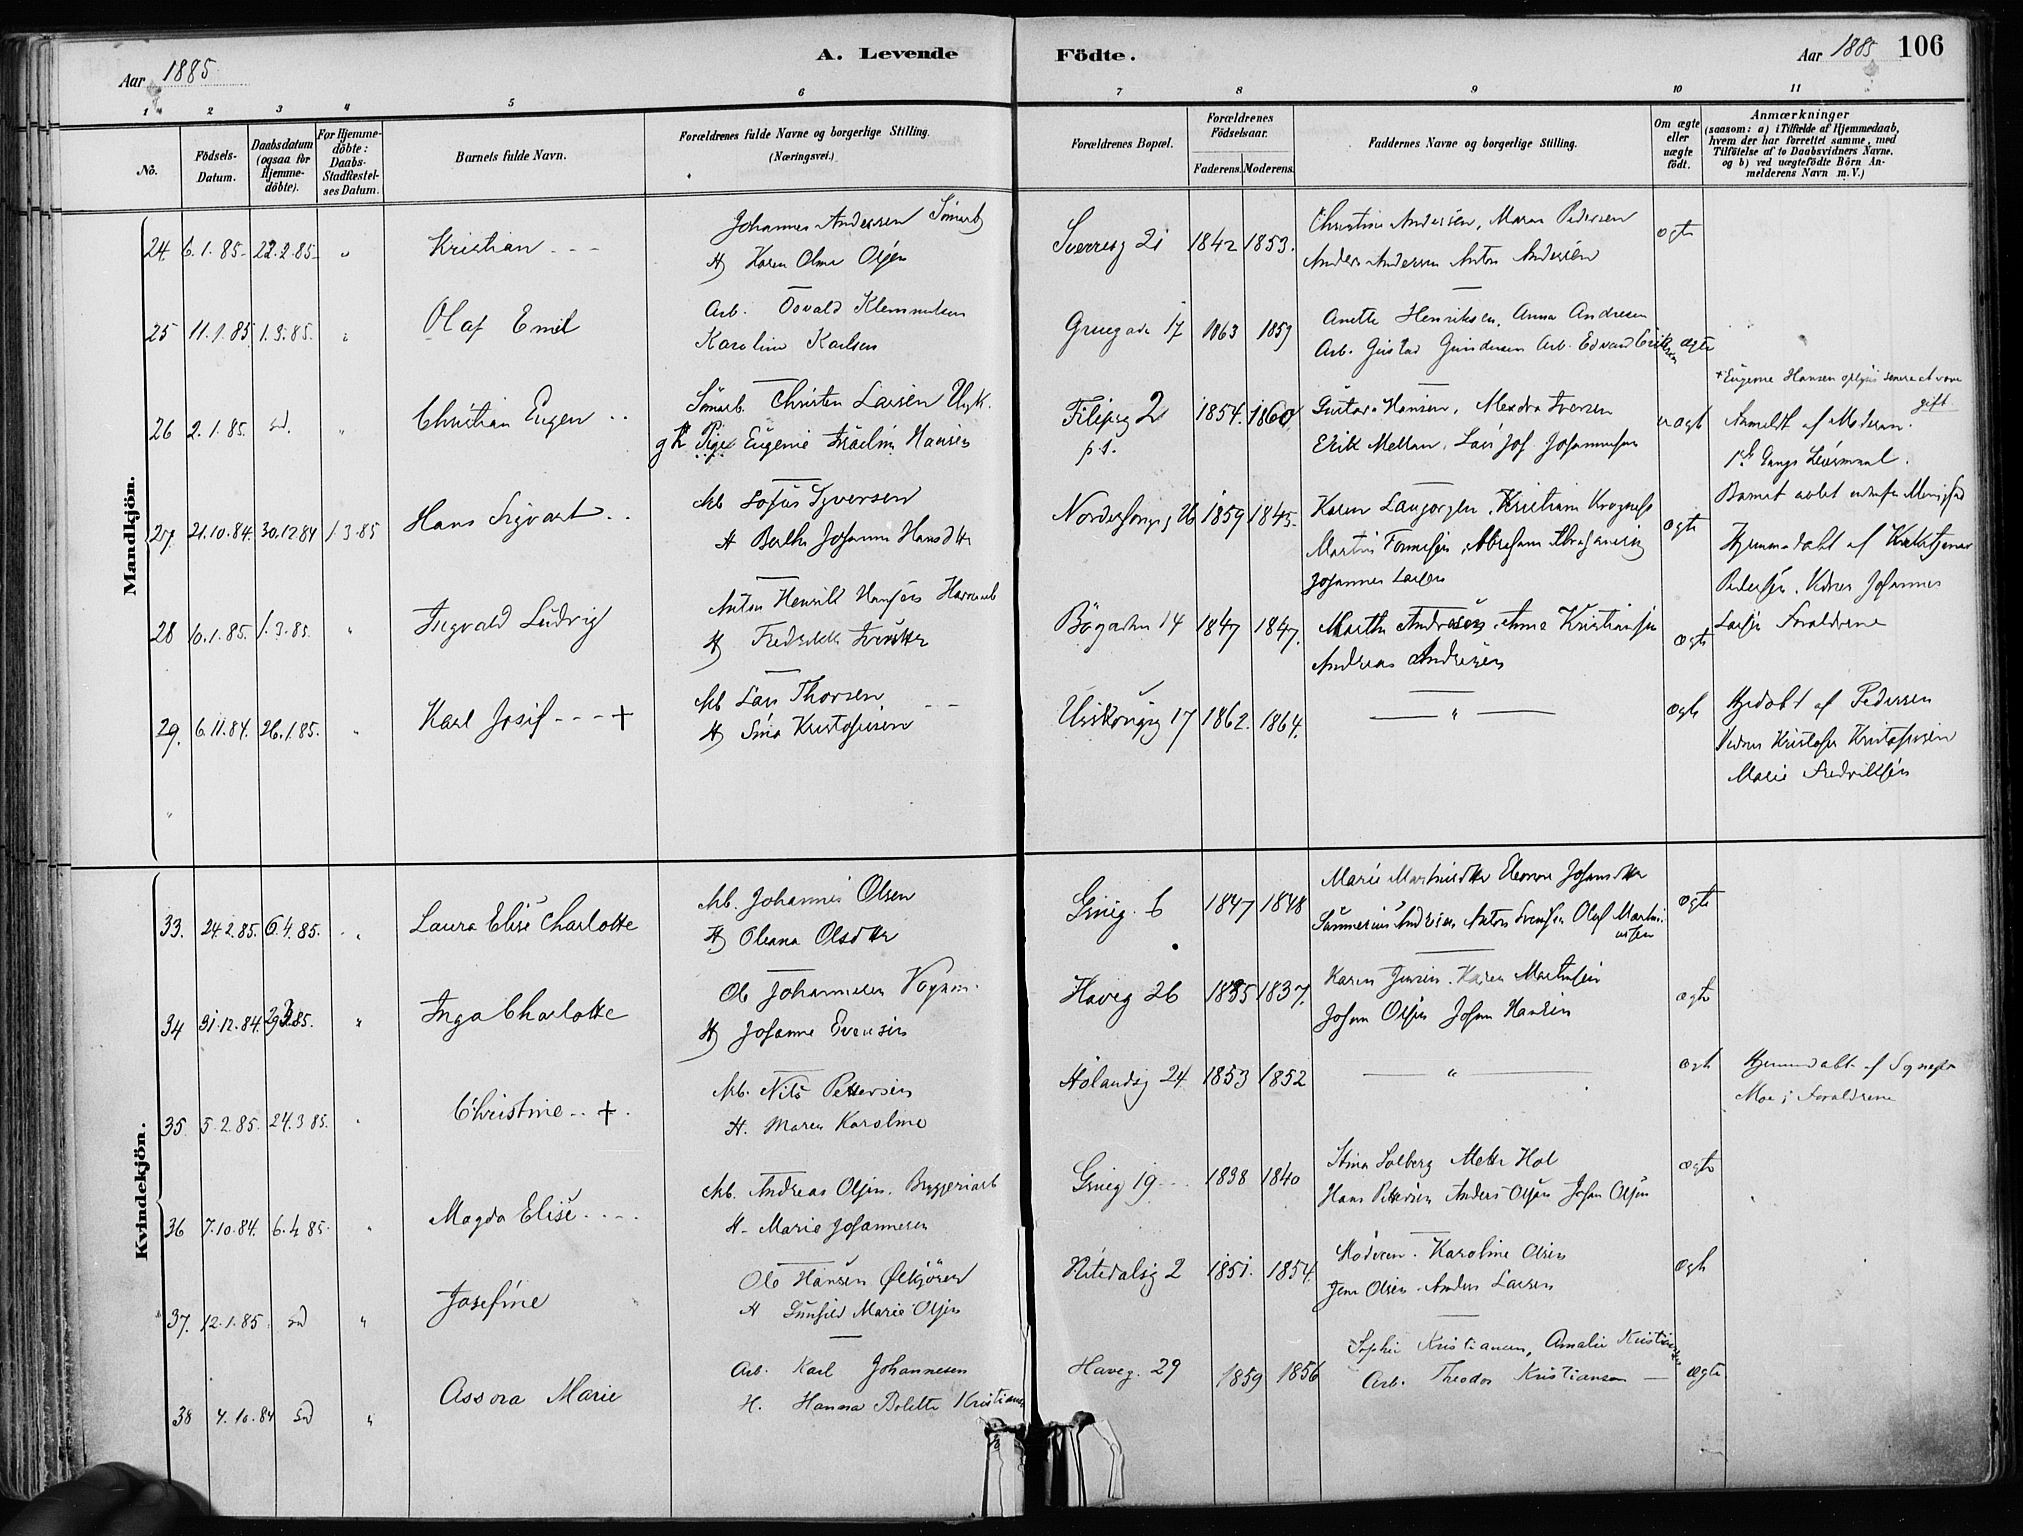 Aar 1885
A. Levende
Födte.
Aar 1885
106
1 2 3 4 5 6 7 8 9 10 11
No.
Födsels-Datum.
Daabsdatum (ogsaa for Hjemmedöbte).
For Hjemmedöbte: Daabs-Stadfæstelses Datum.
Barnets fulde Navn.
Forældrenes fulde Navne og borgerlige Stilling. (Næringsvei.)
Forældrenes Bopæl.
Forældrenes Födselsaar.
Faderens. Moderens.
Faddernes Navne og borgerlige Stilling.
Om ægte eller uægte födt.
Anmærkninger
(saasom: a) i Tilfælde af Hjemmedaab, hvem der har forrettet samme, med Tilföielse af to Daabsvidners Navne, og b) ved uægtefödte Börn Anmelderens Navn m. V.)
Mandkjön.
24. 6.1.85 22.2.85 " Kristian
Johannes Andersen
H Karen Olsen
Sverresg 21 1842 1853.
Christine Andersen, Maren Pedersen
Anders Andersen Anton Andersen
ægte
25 11.1.85. 1.3.85. " Olaf Emil
Arb. Osvald Klemmetsen
Karoline Karlsen
Gruegade 17 1863 1859
Anette Henriksen, Anna Andresen
Arb. Gustav Gundersen Arb. Edvard Eriksen
ægte
26 2.1.85. sd. " Christian Eugen
Christen Larsen Ungk.
Pige Eugenie Hansen
Filipsg 2 1854. 1860.
Gustava Hansen, Iversen
Erik Mellan, Lars Johannesen
uægt
Eugenie Hansen senere at være gift
Anmeldt af Moderen.
1ste Gangs Leiermaal.
27. 21.10.84. 30.12.84 1.3.85 Hans Sigvart
Arb Sofus Syversen
H Berthe Johanne Hansdtter
26 1859 1845
Karen
Johannes Larsen
ægte
Hjemmedøbt af
Pedersen. Vidner Johannes
Larsen Forældrene
28 6.1.85. 1.3.85. " Ingvald Ludvig
Anton Henrik Hansen
H Fredrikke
Bögaden 14 1847 1847.
Marthe Andresen Anne Kristiansen
Andreas Andresen
ægte
29. 6.11.84. 26.1.85. " Karl Josif +
Arb Lars Thorsen
H Sina Kristofersen
17 1862. 1864.
"
ægte
Hjdöbt af Pedersen
Vidner Kristofer Kristofersen
Marie Fredriksen
Kvindekjön.
33. 24.2.85. 6.4.85. " Laura Elise Charlotte
Arb. Johannes Olsen
H Oleana Olsdtter
Grueg. 6 1847 1848
Marie Martinsdtter Eleonore Johansdtter
Andersen Anton Svensen Olaf Martiniussen
ægte
34 31.12.84. 29.3.85. " Inga Charlotte
Ole Johannesen Vogn
H Johanne Evensen
Haveg 26 1835 1837.
Karen Jensen. Karen Mathisen
Johan Olsen Johan Hansen
ægte
35 5.2.85. 24.3.85. Christine +
Arb. Nils Pettersen
H. Maren Karoline
Hölandsg 24 1853 1852
"
ægt
Hjemmedøbt af
Moe; Forældrene
36 7.10.84. 6.4.85. " Magda Elise
Arb. Andreas Olsen. Bryggeriarb
H. Marie Johannesen
Grueg 19 1838 1840
Stina Solberg Mette Hol
Hans Pettersen Anders Olsen Johan Olsen
ægte
37. 12.1.85. sd " Josefine
Ole Hansen Ølkjörer
H Gunhild Marie Olsen
Nitedalsg 2 1851. 1854.
Moderen. Karoline Olsen
Jens Olsen Anders Larsen
ægt
38 4.10.84 sd " Assora Marie
Arb. Karl Johannesen
H. Hanna Bolette Kristians
Haveg. 29 1859 1856
Sophie Kristiansen, Amalie Kristiansen
Arb. Theodor Kristiansen
ægte